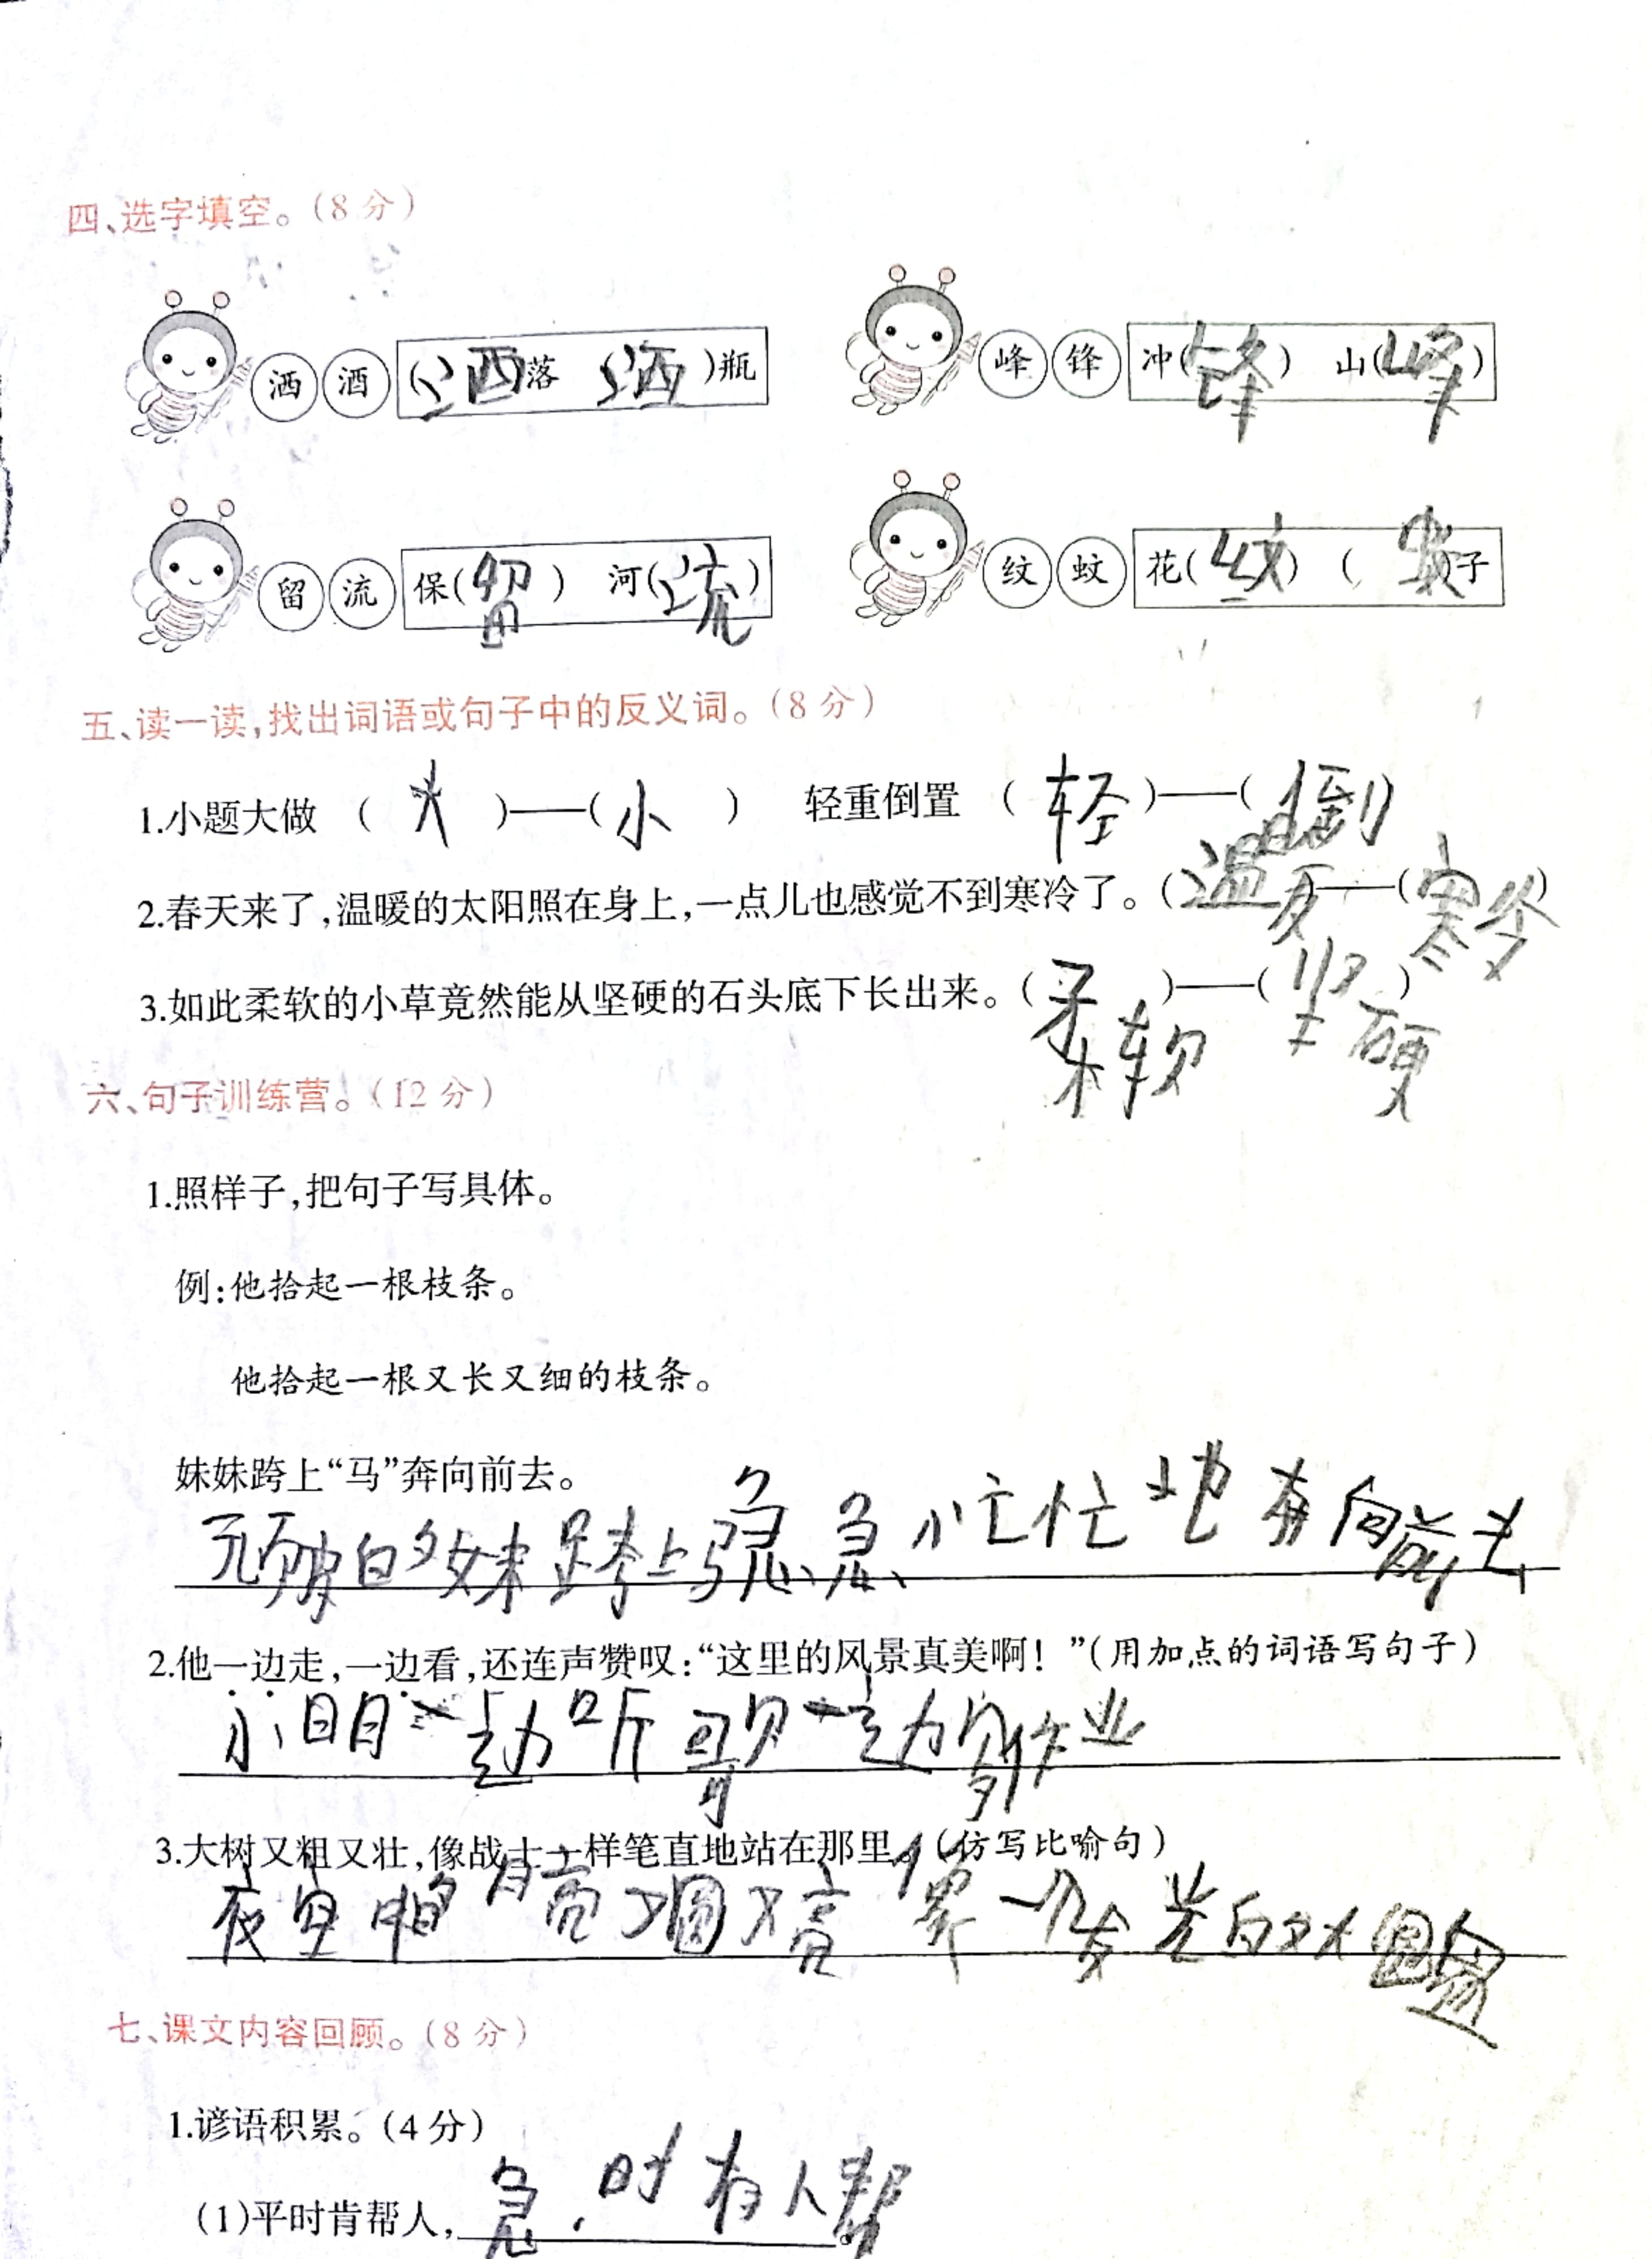 四、选字填空。(8分)
洒 酒 (洒)落 (洒)瓶 峰 锋 冲(锋) 山(峰)
留 流 保(留) 河(流) 纹 蚊 花(纹) (蚊)子
五、读一读,找出词语或句子中的反义词。(8分)
1.小题大做 (大)——(小) 轻重倒置 (轻)——(倒)
2.春天来了,温暖的太阳照在身上,一点儿也感觉不到寒冷了。(温暖)——(寒冷)
3.如此柔软的小草竟然能从坚硬的石头底下长出来。(柔软)——(坚硬)
六、句子训练营。(12分)
1.照样子,把句子写具体。
例:他拾起一根枝条。
他拾起一根又长又细的枝条。
妹妹跨上“马”奔向前去。
顽皮的妹妹跨上马急急忙忙地奔向前去
2.他一边走,一边看,还连声赞叹:“这里的风景真美啊!”(用加点的词语写句子)
小明一边听歌一边写作业
3.大树又粗又壮,像战士一样笔直地站在那里。(仿写比喻句)
夜里的月亮又圆又亮像一个发光的大圆盘
七、课文内容回顾。(8分)
1.谚语积累。(4分)
(1)平时肯帮人,急时有人帮。